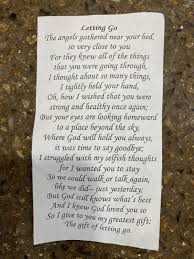 Letting Go
The angels gathered near your bed,
so very close to you
For they knew all of the things
that you were going through,
I thought about so many things,
I tightly held your hand,
Oh, how I wished that you were
strong and healthy once again;
But your eyes are looking homeward
to a place beyond the sky,
Where God will hold you always,
it was time to say goodbye;
I struggled with my selfish thoughts
for I wanted you to stay
So we could walk or talk again,
like we did– just yesterday,
But God still knows what's best
And I knew God loved you so
So I give to you my greatest gift:
The gift of letting go.